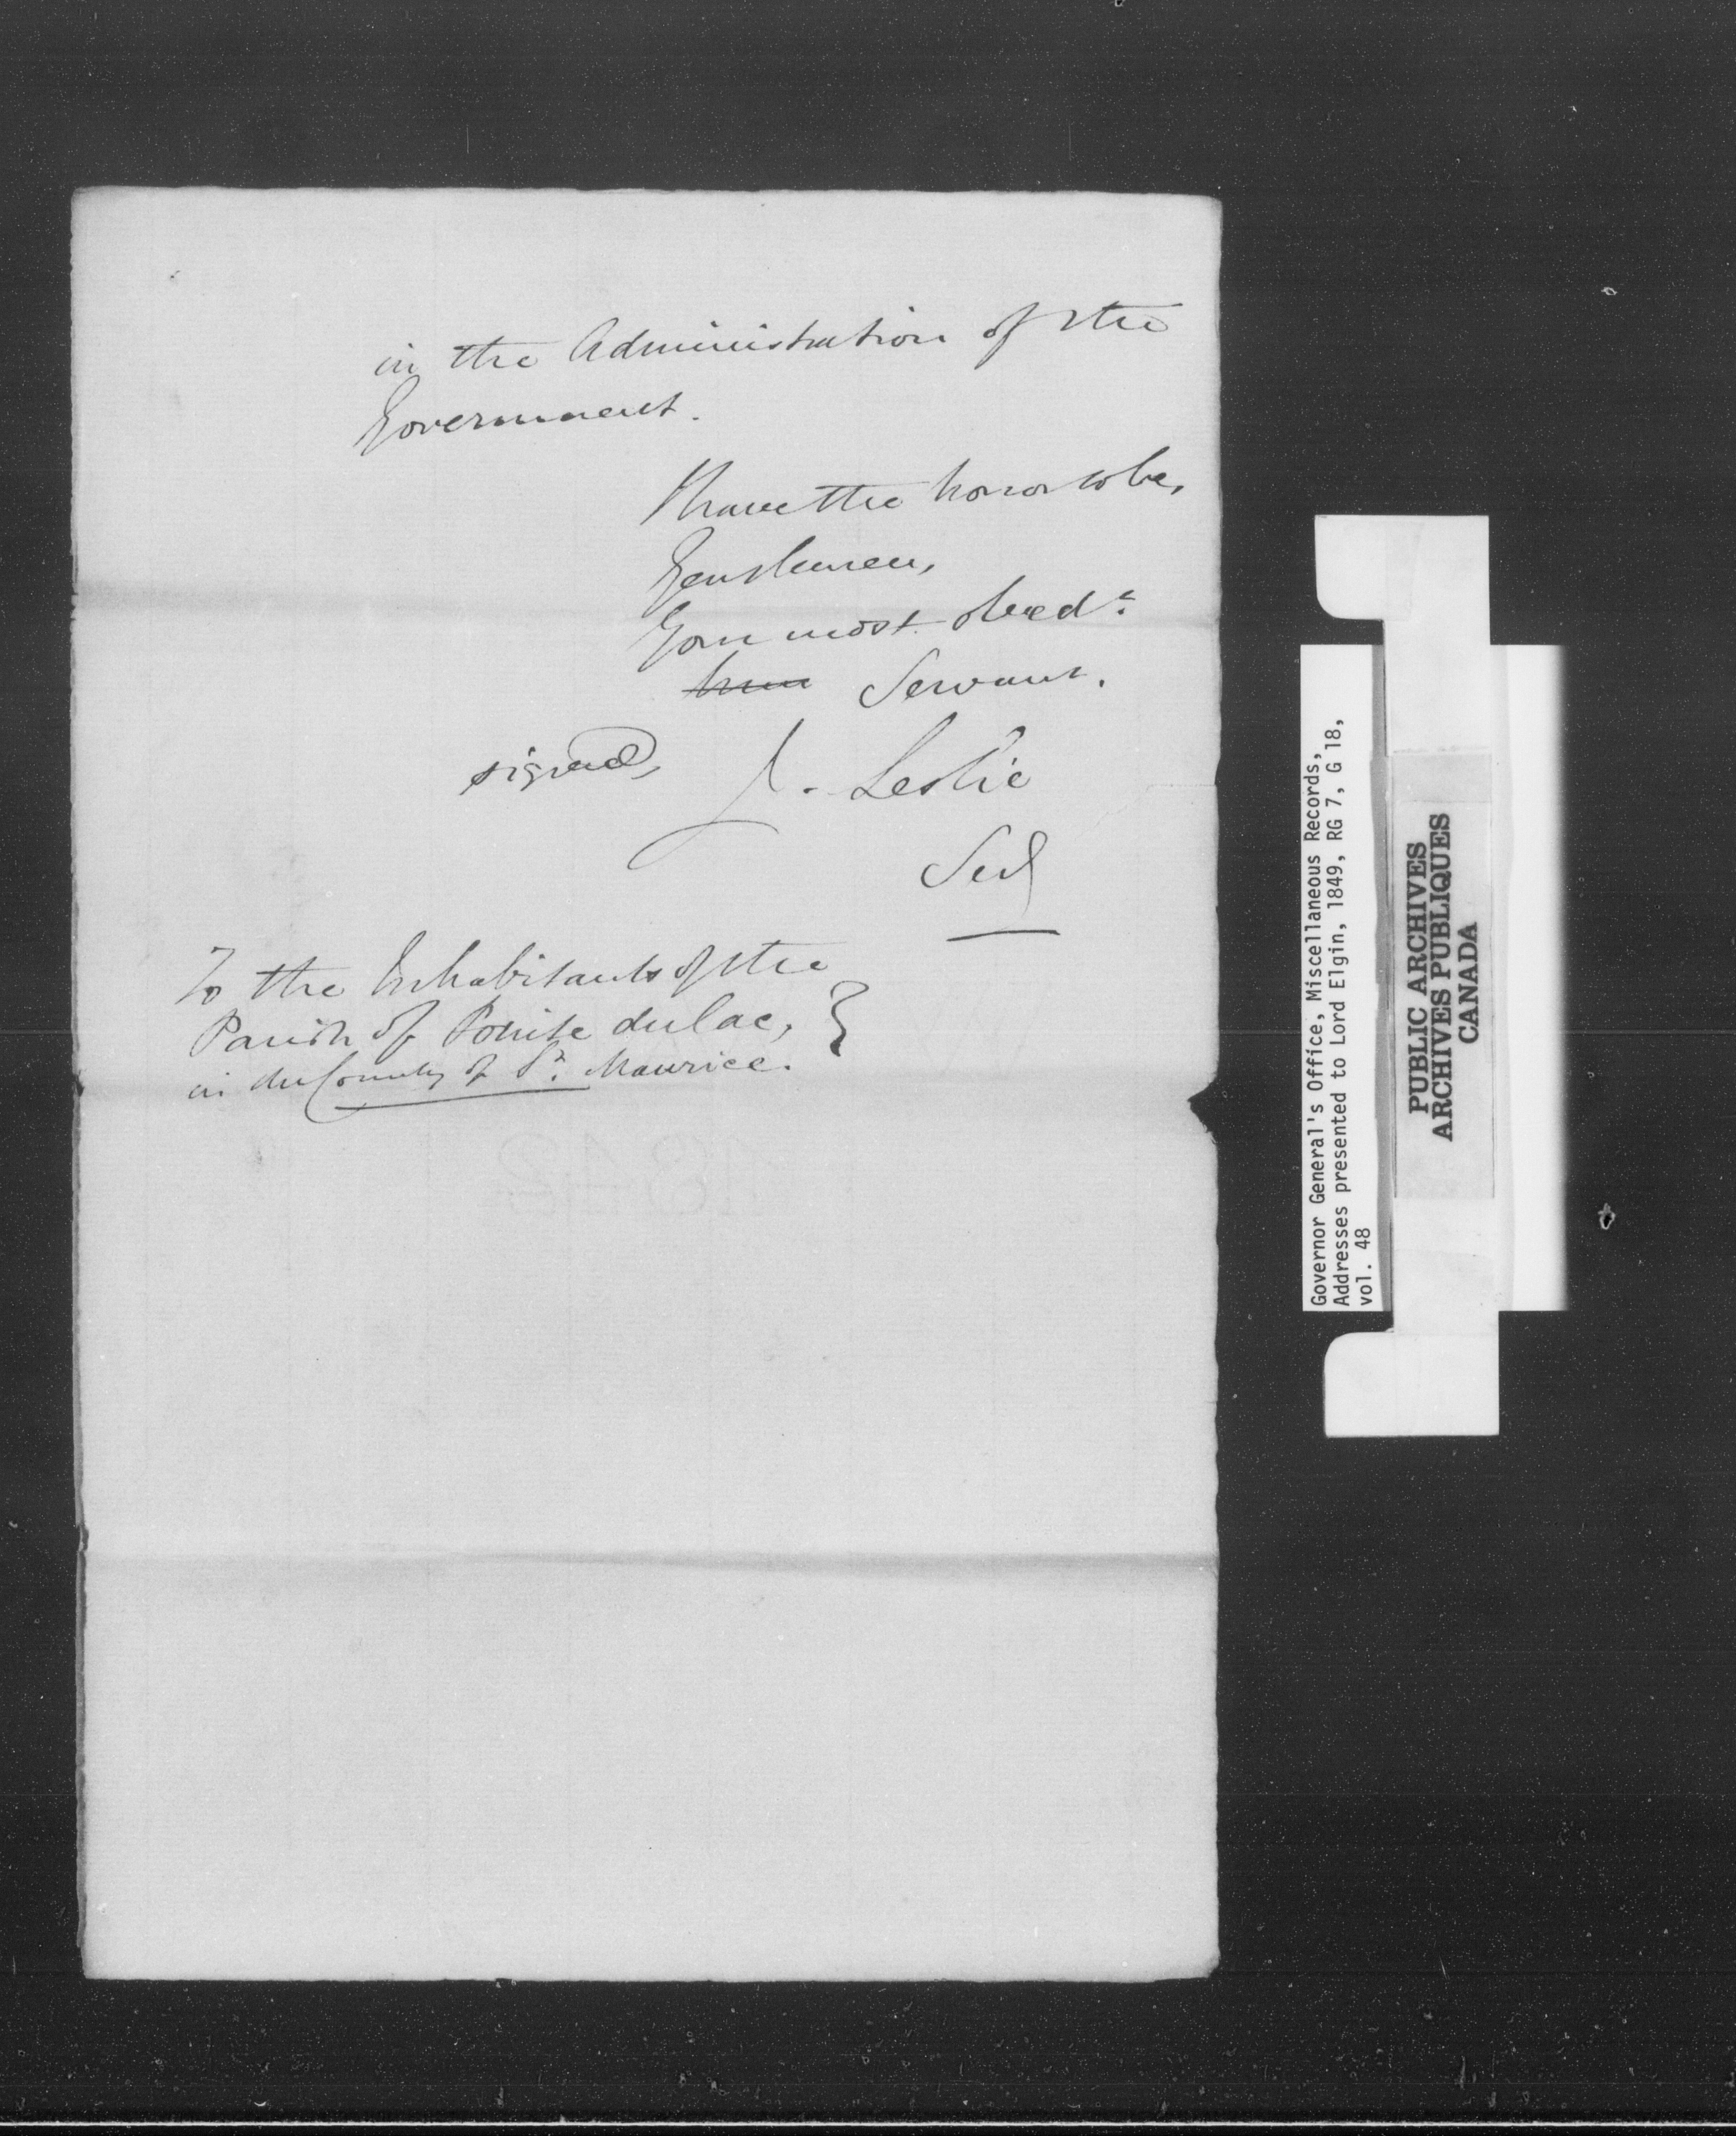 in the Administration of the
Government.
I have the honor to be,
Gentlemen,
Your most obedt
hum Servant.
signed, J. Leslie
Secy
To the Inhabitants of the
Parish of Pointe du Lac,
in the County of St. Maurice.
Governor General's Office, Miscellaneous Records,
Addresses presented to Lord Elgin, 1849, RG 7, G 18,
vol. 48
PUBLIC ARCHIVES
ARCHIVES PUBLIQUES
CANADA